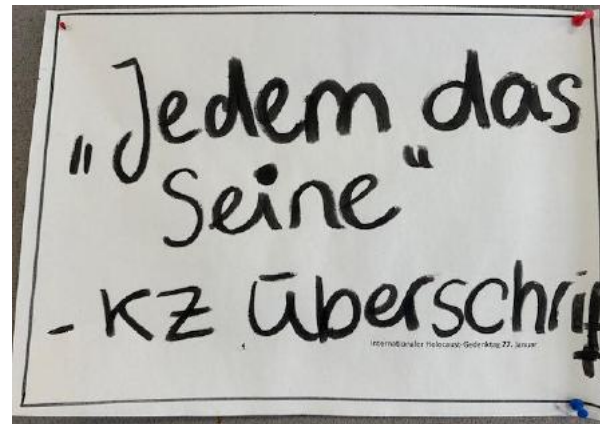 „Jedem das
Seine“
- KZ Überschrift
Internationaler Holocaust-Gedenktag 27. Januar